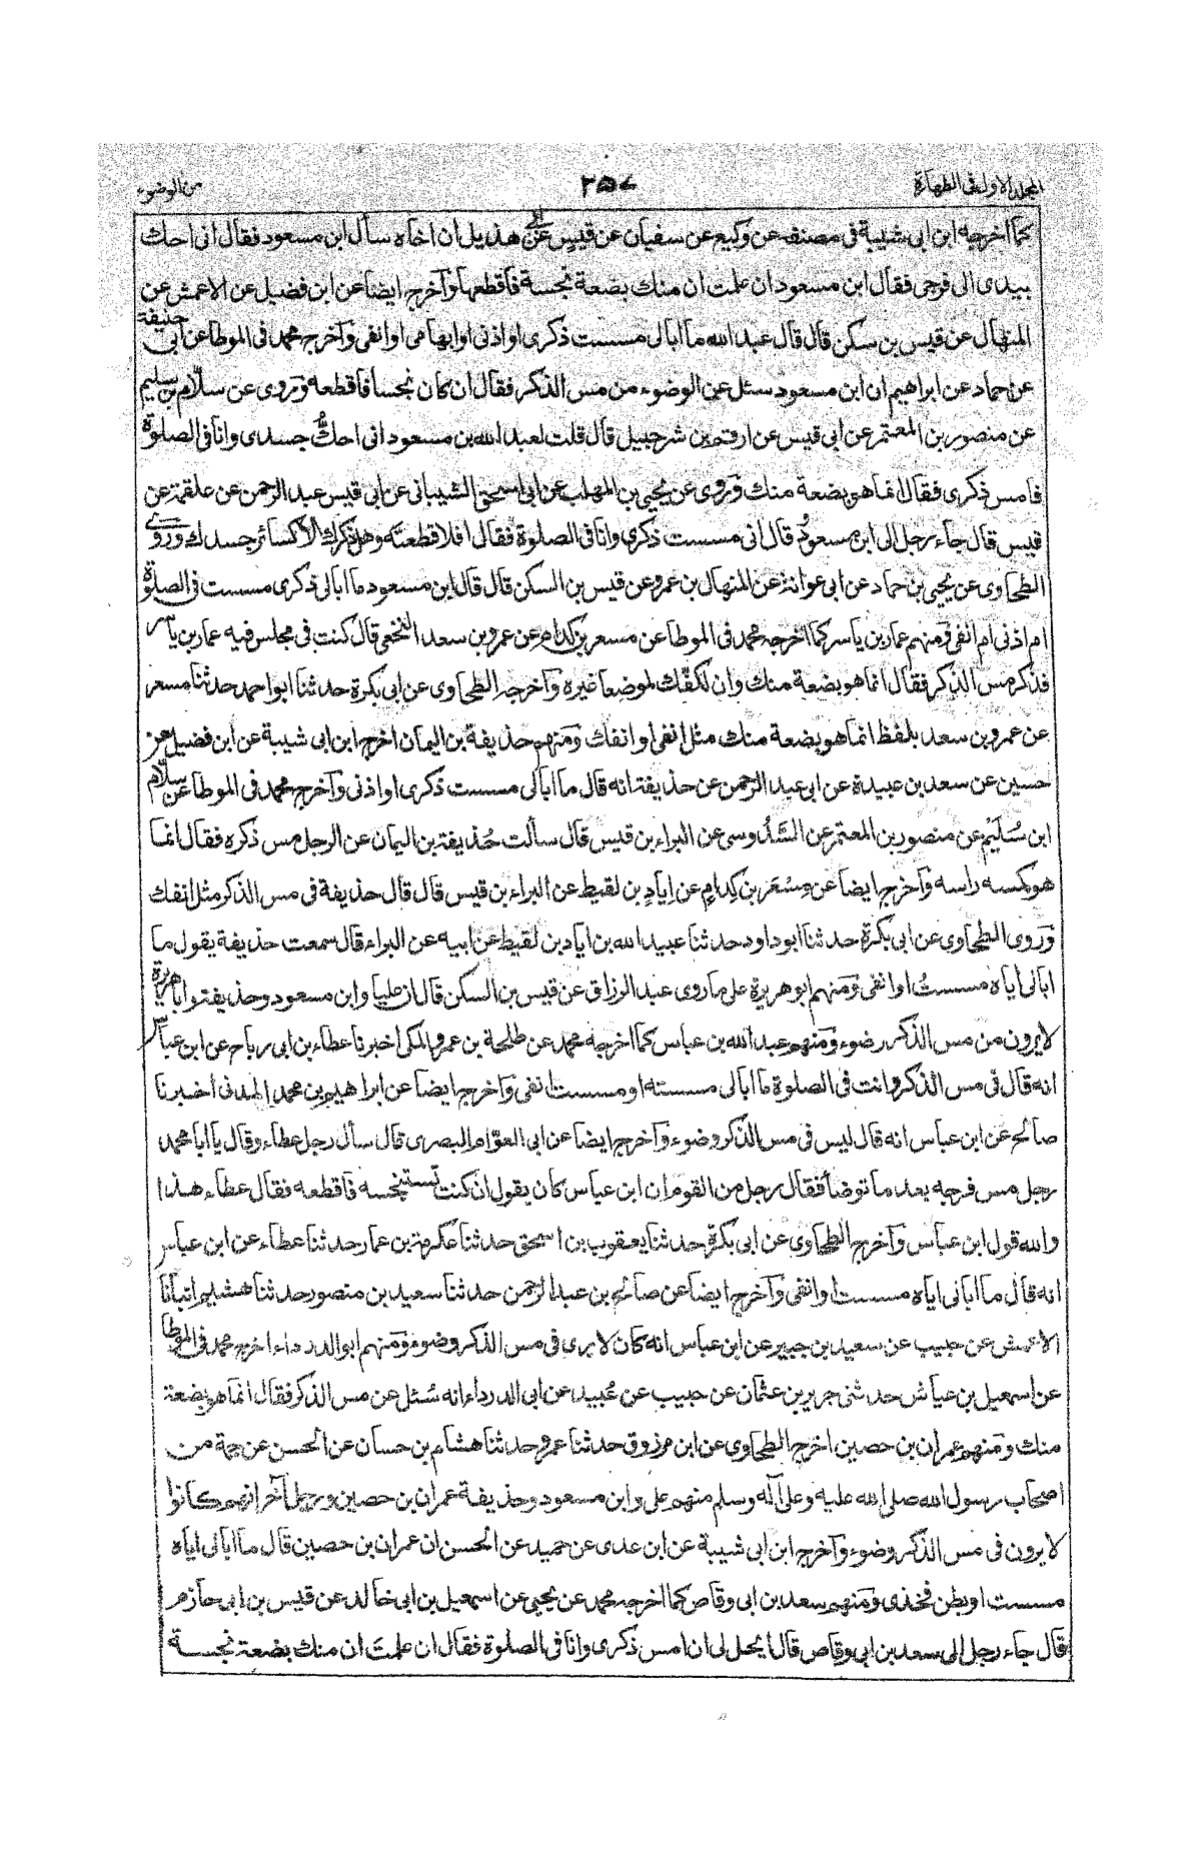 المجلد الاول فى الطهارة
٢٥٧
من الوضوء
كما اخرجه ابن ابى شيبة فى مصنفه عن وكيع عن سفيان عن قيس عن هذيل ان اخاه سأل ابن مسعود فقال انى احك
بيدى الى فرجى فقال ابن مسعود ان علمت ان منك بضعة نجسة فاقطعها وآخرج ايضا عن ابن فضيل عن الاعمش عن
المنهال عن قيس بن سكن قال قال عبد الله ما ابالى مسست ذكرى او اذنى او ابهامى او انفى وآخرج محمد فى الموطا عن ابى حنيفة
عن حماد عن ابراهيم ان ابن مسعود سئل عن الوضوء من مس الذكر فقال ان كان نجسا فاقطعه وروى عن سلام بن سليم
عن منصور بن المعتمر عن ابى قيس عن ارقم بن شرحبيل قال قلت لعبد الله بن مسعود انى احك جسدى وانا فى الصلوة
فامس ذكرى فقال انما هو بضعة منك وروى عن يحيى بن المهلب عن ابى اسحق الشيبانى عن ابى قيس عبد الرحمن عن علقمة عن
قيس قال جاء رجل الى ابن مسعود قال انى مسست ذكرى وانا فى الصلوة فقال افلا قطعته وهل ذكرك الا كسائر جسدك وروى
الطحاوى عن يحيى بن حماد عن ابى عوانة عن المنهال بن عمرو عن قيس بن السكن قال قال ابن مسعود ما ابالى ذكرى مسست فى الصلوة
ام اذنى ام انفى ومنهم عمار بن ياسر كما اخرجه محمد فى الموطا عن مسعر بن كدام عن عمرو بن سعد النخعى قال كنت فى مجلس فيه عمار بن ياسر
فذكر مس الذكر فقال انما هو بضعة منك وان لكفك لموضعا غيره وآخرجه الطحاوى عن ابى بكرة حدثنا ابو احمد حدثنا مسعر
عن عمرو بن سعد بلفظ انما هو بضعة منك مثل انفى او انفك ومنهم حذيفة بن اليمان اخرج ابن ابى شيبة عن ابن فضيل عن
حسين عن سعد بن عبيدة عن ابى عبد الرحمن عن حذيفة انه قال ما ابالى مسست ذكرى او اذنى وآخرج محمد فى الموطا عن سلام
ابن سُليم عن منصور بن المعتمر عن السَّدُوسى عن البراء بن قيس قال سألت حُذيفة بن اليمان عن الرجل مس ذكره فقال انما
هو كمسه راسه وآخرج ايضا عن مِسْعَر بن كِدامٍ عن اِيادٍ بن لقيط عن البراء بن قيس قال قال حذيفة فى مس الذكر مثل انفك
وروى الطحاوى عن ابى بكرة حدثنا ابو داود حدثنا عبيد الله بن اياد بن لقيط عن ابيه عن البراء قال سمعت حذيفة يقول ما
ابالى اياه مسستُ او انفى ومنهم ابو هريرة على ما روى عبد الرزاق عن قيس بن السكن قال ان عليا وابن مسعود وحذيفة وابا هريرة
لا يرون من مس الذكر وضوء ومنهم عبد الله بن عباس كما اخرجه محمد عن طلحة بن عمرو المكى اخبرنا عطاء بن ابى رباح عن ابن عباس
انه قال فى مس الذكر وانت فى الصلوة ما ابالى مسسته او مسست انفى وآخرج ايضا عن ابراهيم بن محمد المدنى اخبرنا
صالح عن ابن عباس انه قال ليس فى مس الذكر وضوء وآخرج ايضا عن ابى العوّام البصرى قال سأل رجل عطاء وقال يا ابا محمد
رجل مس فرجه بعد ما توضأ فقال رجل من القوم ان ابن عباس كان يقول ان كنت تستنجسه فاقطعه فقال عطاء هذا
والله قول ابن عباس وآخرج الطحاوى عن ابى بكرة حدثنا يعقوب بن اسحق حدثنا عكرمة بن عمار حدثنا عطاء عن ابن عباس
انه قال ما ابالى اياه مسست او انفى وآخرج ايضا عن صالح بن عبد الرحمن حدثنا سعيد بن منصور حدثنا هشيم انبأنا
الاعمش عن حبيب عن سعيد بن جبير عن ابن عباس انه كان لا يرى فى مس الذكر وضوء ومنهم ابو الدرداء اخرج محمد فى الموطا
عن اسمعيل بن عياش حدثنى جرير بن عثمان عن حبيب عن عُبيد عن ابى الدرداء انه سُئل عن مس الذكر فقال انما هو بضعة
منك ومنهم عمران بن حصين اخرج الطحاوى عن ابن مرزوق حدثنا عمرو حدثنا هشام بن حسان عن الحسن عن خمة من
اصحاب رسول الله صلى الله عليه وعلى آله وسلم منهم على وابن مسعود وحذيفة عمران بن حصين ورجل آخر انهم كانوا
لا يرون فى مس الذكر وضوء وآخرج ابن ابى شيبة عن ابن عدى عن حميد عن الحسن ان عمران بن حصين قال ما ابالى اياه
مسست او بطن فخذى ومنهم سعد بن ابى وقاص كما اخرجه محمد عن يحيى عن اسمعيل بن ابى خالد عن قيس بن ابى حازم
قال جاء رجل الى سعد بن ابى وقاص قال ايحل لى ان امس ذكرى وانا فى الصلوة فقال ان علمتَ ان منك بضعة نجسة